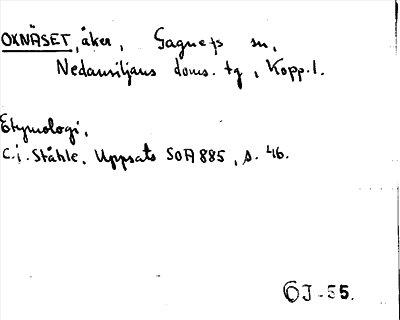 OXNÄSET, åker, Gagnefs sn,
Nedansiljans doms. tg, Kopp.l.
Etymologi.
C.i. Ståhle, Uppsats SOFI 885, s. 46.
OJ-55.